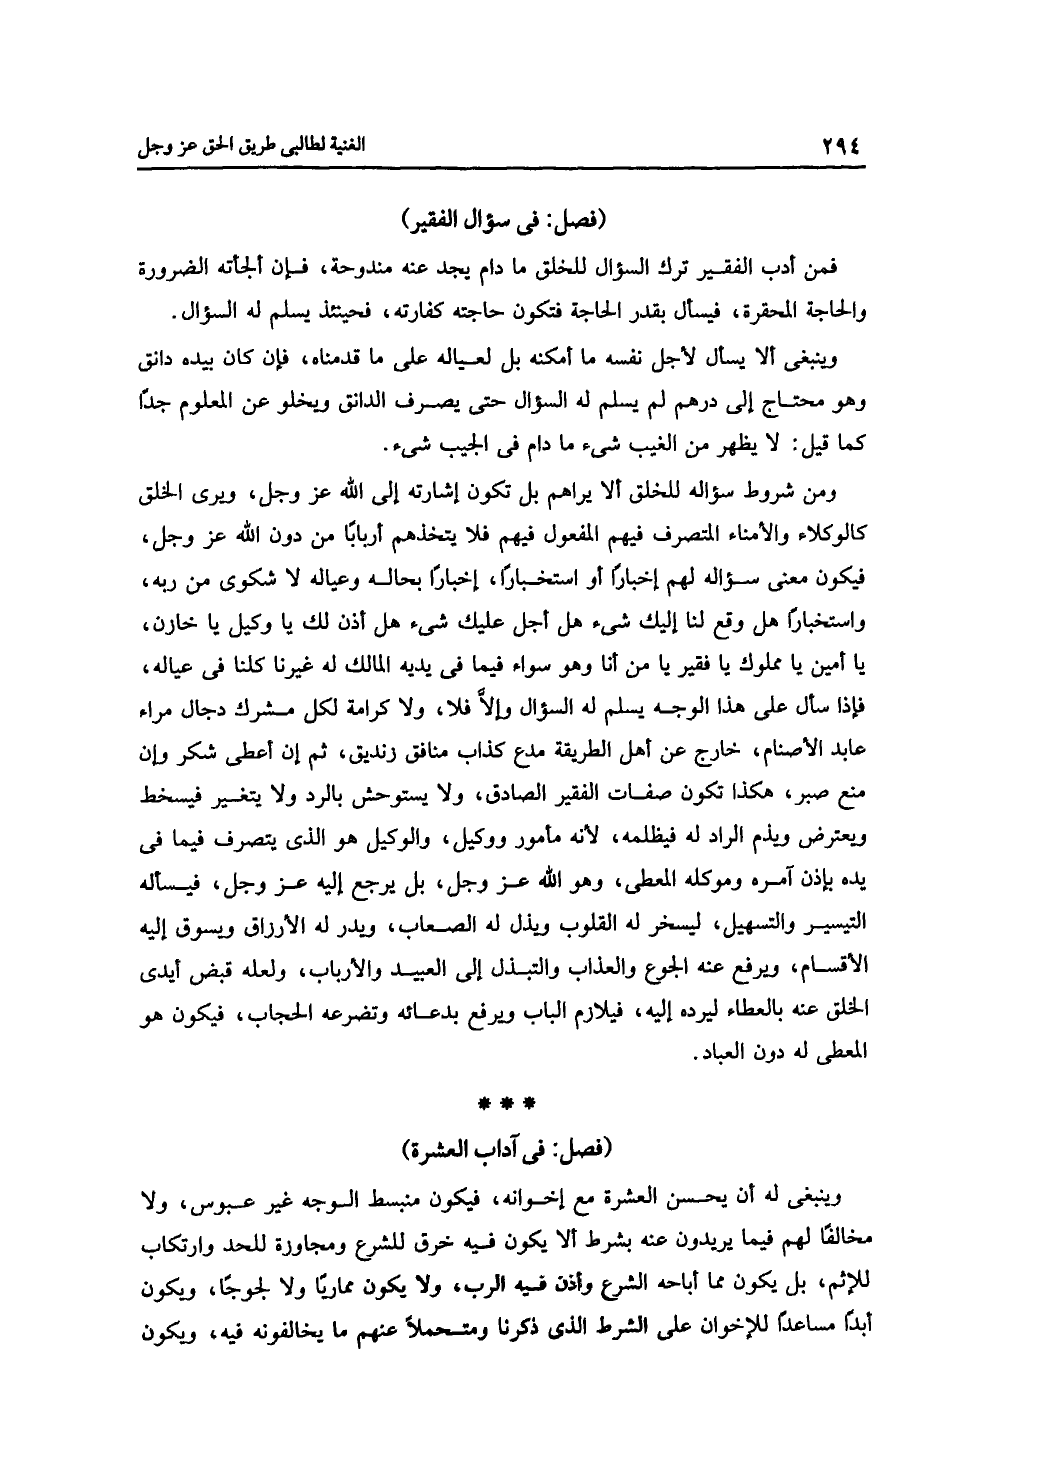 ٢٩٤ الغنية لطالبى طريق الحق عز وجل
(فصل: فى سؤال الفقير)
فمن أدب الفقير ترك السؤال للخلق ما دام يجد عنه مندوحة، فإن ألجأته الضرورة
والحاجة المحقرة، فيسأل بقدر الحاجة فتكون حاجته كفارته، فحينئذ يسلم له السؤال.
وينبغى ألا يسأل لأجل نفسه ما أمكنه بل لعياله على ما قدمناه، فإن كان بيده دانق
وهو محتاج إلى درهم لم يسلم له السؤال حتى يصرف الدانق ويخلو عن المعلوم جدًا
كما قيل: لا يظهر من الغيب شىء ما دام فى الجيب شىء.
ومن شروط سؤاله للخلق ألا يراهم بل تكون إشارته إلى الله عز وجل، ويرى الخلق
كالوكلاء والأمناء المتصرف فيهم المفعول فيهم فلا يتخذهم أربابًا من دون الله عز وجل،
فيكون معنى سؤاله لهم إخبارًا أو استخبارًا، إخبارًا بحاله وعياله لا شكوى من ربه،
واستخبارًا هل وقع لنا إليك شىء هل أجل عليك شىء هل أذن لك يا وكيل يا خازن،
يا أمين يا مملوك يا فقير يا من أنا وهو سواء فيما فى يديه المالك له غيرنا كلنا فى عياله،
فإذا سأل على هذا الوجه يسلم له السؤال وإلاَّ فلا، ولا كرامة لكل مشرك دجال مراء
عابد الأصنام، خارج عن أهل الطريقة مدع كذاب منافق زنديق، ثم إن أعطى شكر وإن
منع صبر، هكذا تكون صفات الفقير الصادق، ولا يستوحش بالرد ولا يتغير فيسخط
ويعترض ويذم الراد له فيظلمه، لأنه مأمور ووكيل، والوكيل هو الذى يتصرف فيما فى
يده بإذن آمره وموكله المعطى، وهو الله عز وجل، بل يرجع إليه عز وجل، فيسأله
التيسير والتسهيل، ليسخر له القلوب ويذل له الصعاب، ويدر له الأرزاق ويسوق إليه
الأقسام، ويرفع عنه الجوع والعذاب والتبذل إلى العبيد والأرباب، ولعله قبض أيدى
الخلق عنه بالعطاء ليرده إليه، فيلازم الباب ويرفع بدعائه وتضرعه الحجاب، فيكون هو
المعطى له دون العباد.
* * *
(فصل: فى آداب العشرة)
وينبغى له أن يحسن العشرة مع إخوانه، فيكون منبسط الوجه غير عبوس، ولا
مخالفًا لهم فيما يريدون عنه بشرط ألا يكون فيه خرق للشرع ومجاوزة للحد وارتكاب
للإثم، بل يكون مما أباحه الشرع وأذن فيه الرب، ولا يكون مماريًا ولا لجوجًا، ويكون
أبدًا مساعدًا للإخوان على الشرط الذى ذكرنا ومتحملاً عنهم ما يخالفونه فيه، ويكون